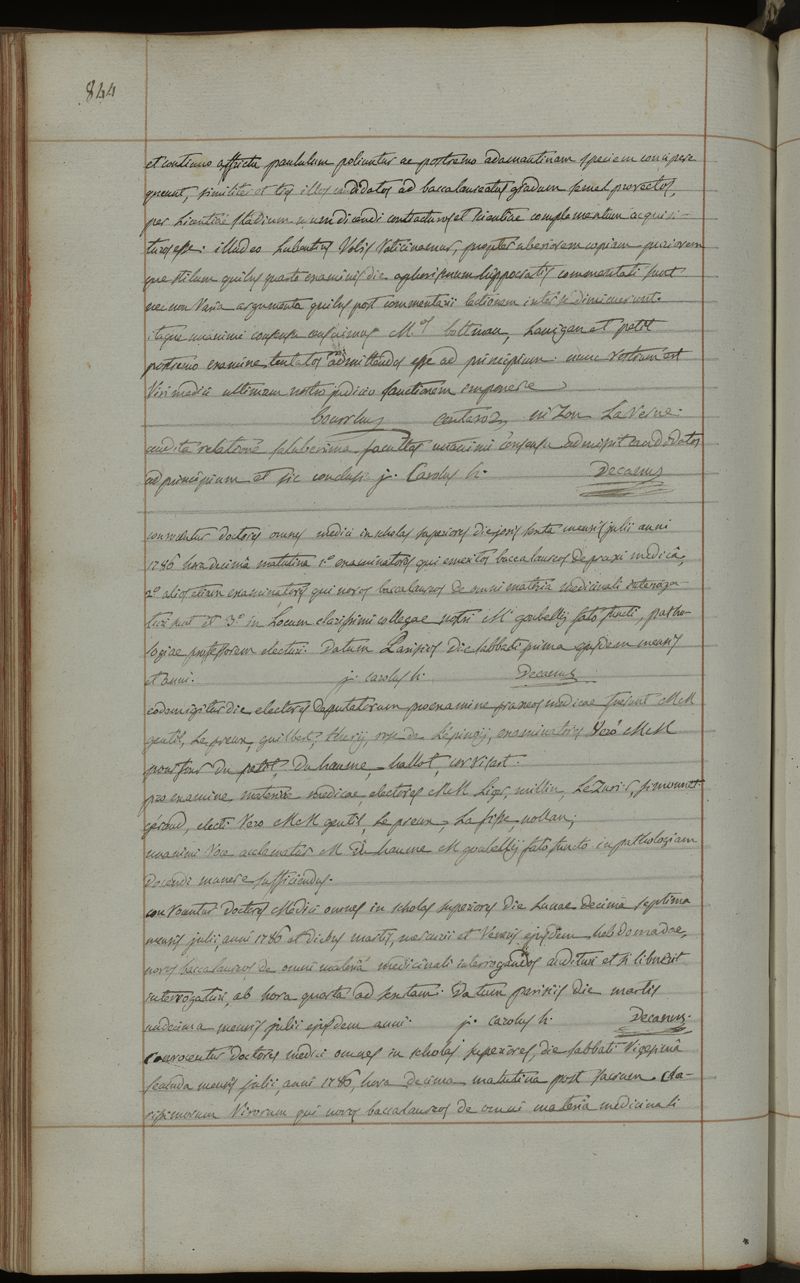 844
et continuo affrictu paululum poliuntur ac postremo adamantinam speciem concipere
queunt, similiter et tres illos candidatos ad baccalaureatus gradum semel provectos,
per Licentiae stadium dicendi et scientiae complementum acquisi-
turos esse. illud eo Lubentius Vobis Vaticinamur, propter uberiorem copiam
quibus quarto examinis die aphorismum hippocratis commentati sunt
nec non Varia argumenta quibus post commentarii lectionem inter se dimicuerunt.
itaque unanimi consensu censuimus M.os bottman, Lanigan et petit
postremo examine tentatos admittendos esse ad principium. nunc vestrum est
Viri medici ultimam nostro judicio sanctionem imponere
Bourdier centaroz, nizon La Verne.
audita relatione saluberrima facultas unanimi consensu admisit candidatos
ad principium et sic conclusi j. Carolus h. Decanus
convocentur doctores omnes medici in scholas superiores die jovis sexta mensis julii anni
1786 hora decima matutina 1.o examinatores qui emeritos baccalaureos de praxi medica,
2.o alios etiam examinatores qui novos baccalaureos de omni materia medicinali interroga-
turi sunt et 3.o in Locum clarissimi collegae nostri M.i goubelly fato functi, patho-
logiae professorem electuri. datum Parisiis die sabbati prima ejusdem mensis
et anni. j. carolus h. Decanus
eodem igitur die electores deputatorum pro examine praxeos medicae fuerunt MM
gentil, Le preux, guilbert, thery, de Lépinoy, examinatores Vero MM
pourfour du petit, Duhaume, hallot, corvisart.
pro examine materiae medicae, electores MM Liger, millin, LeZurier, simonnet
géraud, electi Vero MM gentil, Le preux, La fisse, nollan;
unanimi Voce acclamatus M Duhaume M goubelly fato functo in pathologiam
docendi munere sufficiendus.
convocentur doctores Medici omnes in scholas superiores die Lunae decima septima
mensis julii, anni 1786 et diebus martis, mercurii et Veneris ejusdem hebdomadae,
novos baccalaureos de omni materia medicinali interrogandos audituri et si libuerit
interrogaturi, ab hora quarta ad sextam. Datum parisiis die martis
undecima mensis julii ejusdem anni. j. carolus h. Decanus.
Convocentur doctores medici omnes in scholas superiores, die sabbati Vigesima
secunda mensis julii, anni 1786, hora decima matutina post sacrum. Cla-
rissimorum Virorum qui novos baccalaureos de omni materia medicinali